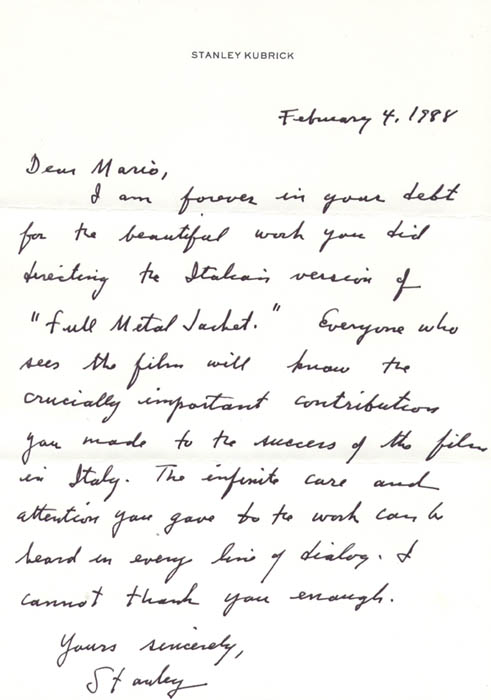 STANLEY KUBRICK
February 4, 1988
Dear Mario,
I am forever in your debt
for the beautiful work you did
directing the Italian version of
"Full Metal Jacket." Everyone who
sees the film will know the
crucially important contribution
you made to the success of the film
in Italy. The infinite care and
attention you gave to the work can be
heard in every line of dialog. I
cannot thank you enough.
Yours sincerely,
Stanley